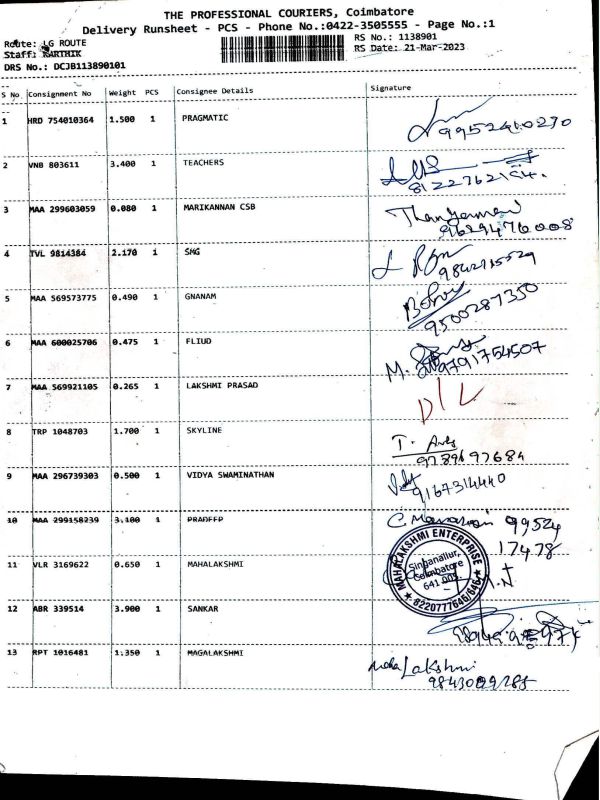 THE PROFESSIONAL COURIERS, Coimbatore
Delivery Runsheet - PCS - Phone No.:0422-3505555 - Page No.:1
Route: LG ROUTE
Staff: KARTHIK
DRS No.: DCJB113890101
RS No.: 1138901
RS Date: 21-Mar-2023
S No. Consignment No Weight PCS Consignee Details Signature
1 HRD 754010364 1.500 1 PRAGMATIC
2 VNB 803611 3.400 1 TEACHERS
3 MAA 299603059 0.080 1 MARIKANNAN CSB
9629476008
4 TVL 9814384 2.170 1 SMG
5 MAA 569573775 0.490 1 GNANAM
9500287350
6 MAA 600025706 0.475 1 FLIUD
M. 9791754507
7 MAA 569921105 0.265 1 LAKSHMI PRASAD
D/L
8 TRP 1048703 1.700 1 SKYLINE
T.
9789697684
9 MAA 296739303 0.500 1 VIDYA SWAMINATHAN
9167314440
10 MAA 299158239 3.100 1 PRADEEP
99524
17478
11 VLR 3169622 0.650 1 MAHALAKSHMI
MAHALAKSHMI ENTERPRISE
Singanallur,
Coimbatore
641 005.
8220777645/646
12 ABR 339514 3.900 1 SANKAR
13 RPT 1016481 1.350 1 MAGALAKSHMI
Lakshmi